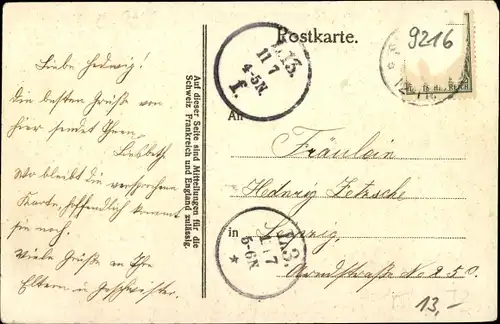 Postkarte.
9216
L.13.
11 7
4-5N.
f.
Liebe Hedwig!
Die besten Grüße von
hier sendet Ihnen
Liesbeth
Wo bleibt die versprochene
Karte, hoffentlich kommt
sie noch.
Viele Grüße an Ihre
Eltern u. Geschwister.
Auf dieser Seite sind Mitteilungen für die
Schweiz Frankreich und England zulässig.
An
Fräulein
Hedwig Zetzsche
in Leipzig,
Arndtstraße No 25 0.
L.13.
11 7
5-6N
*
13,-